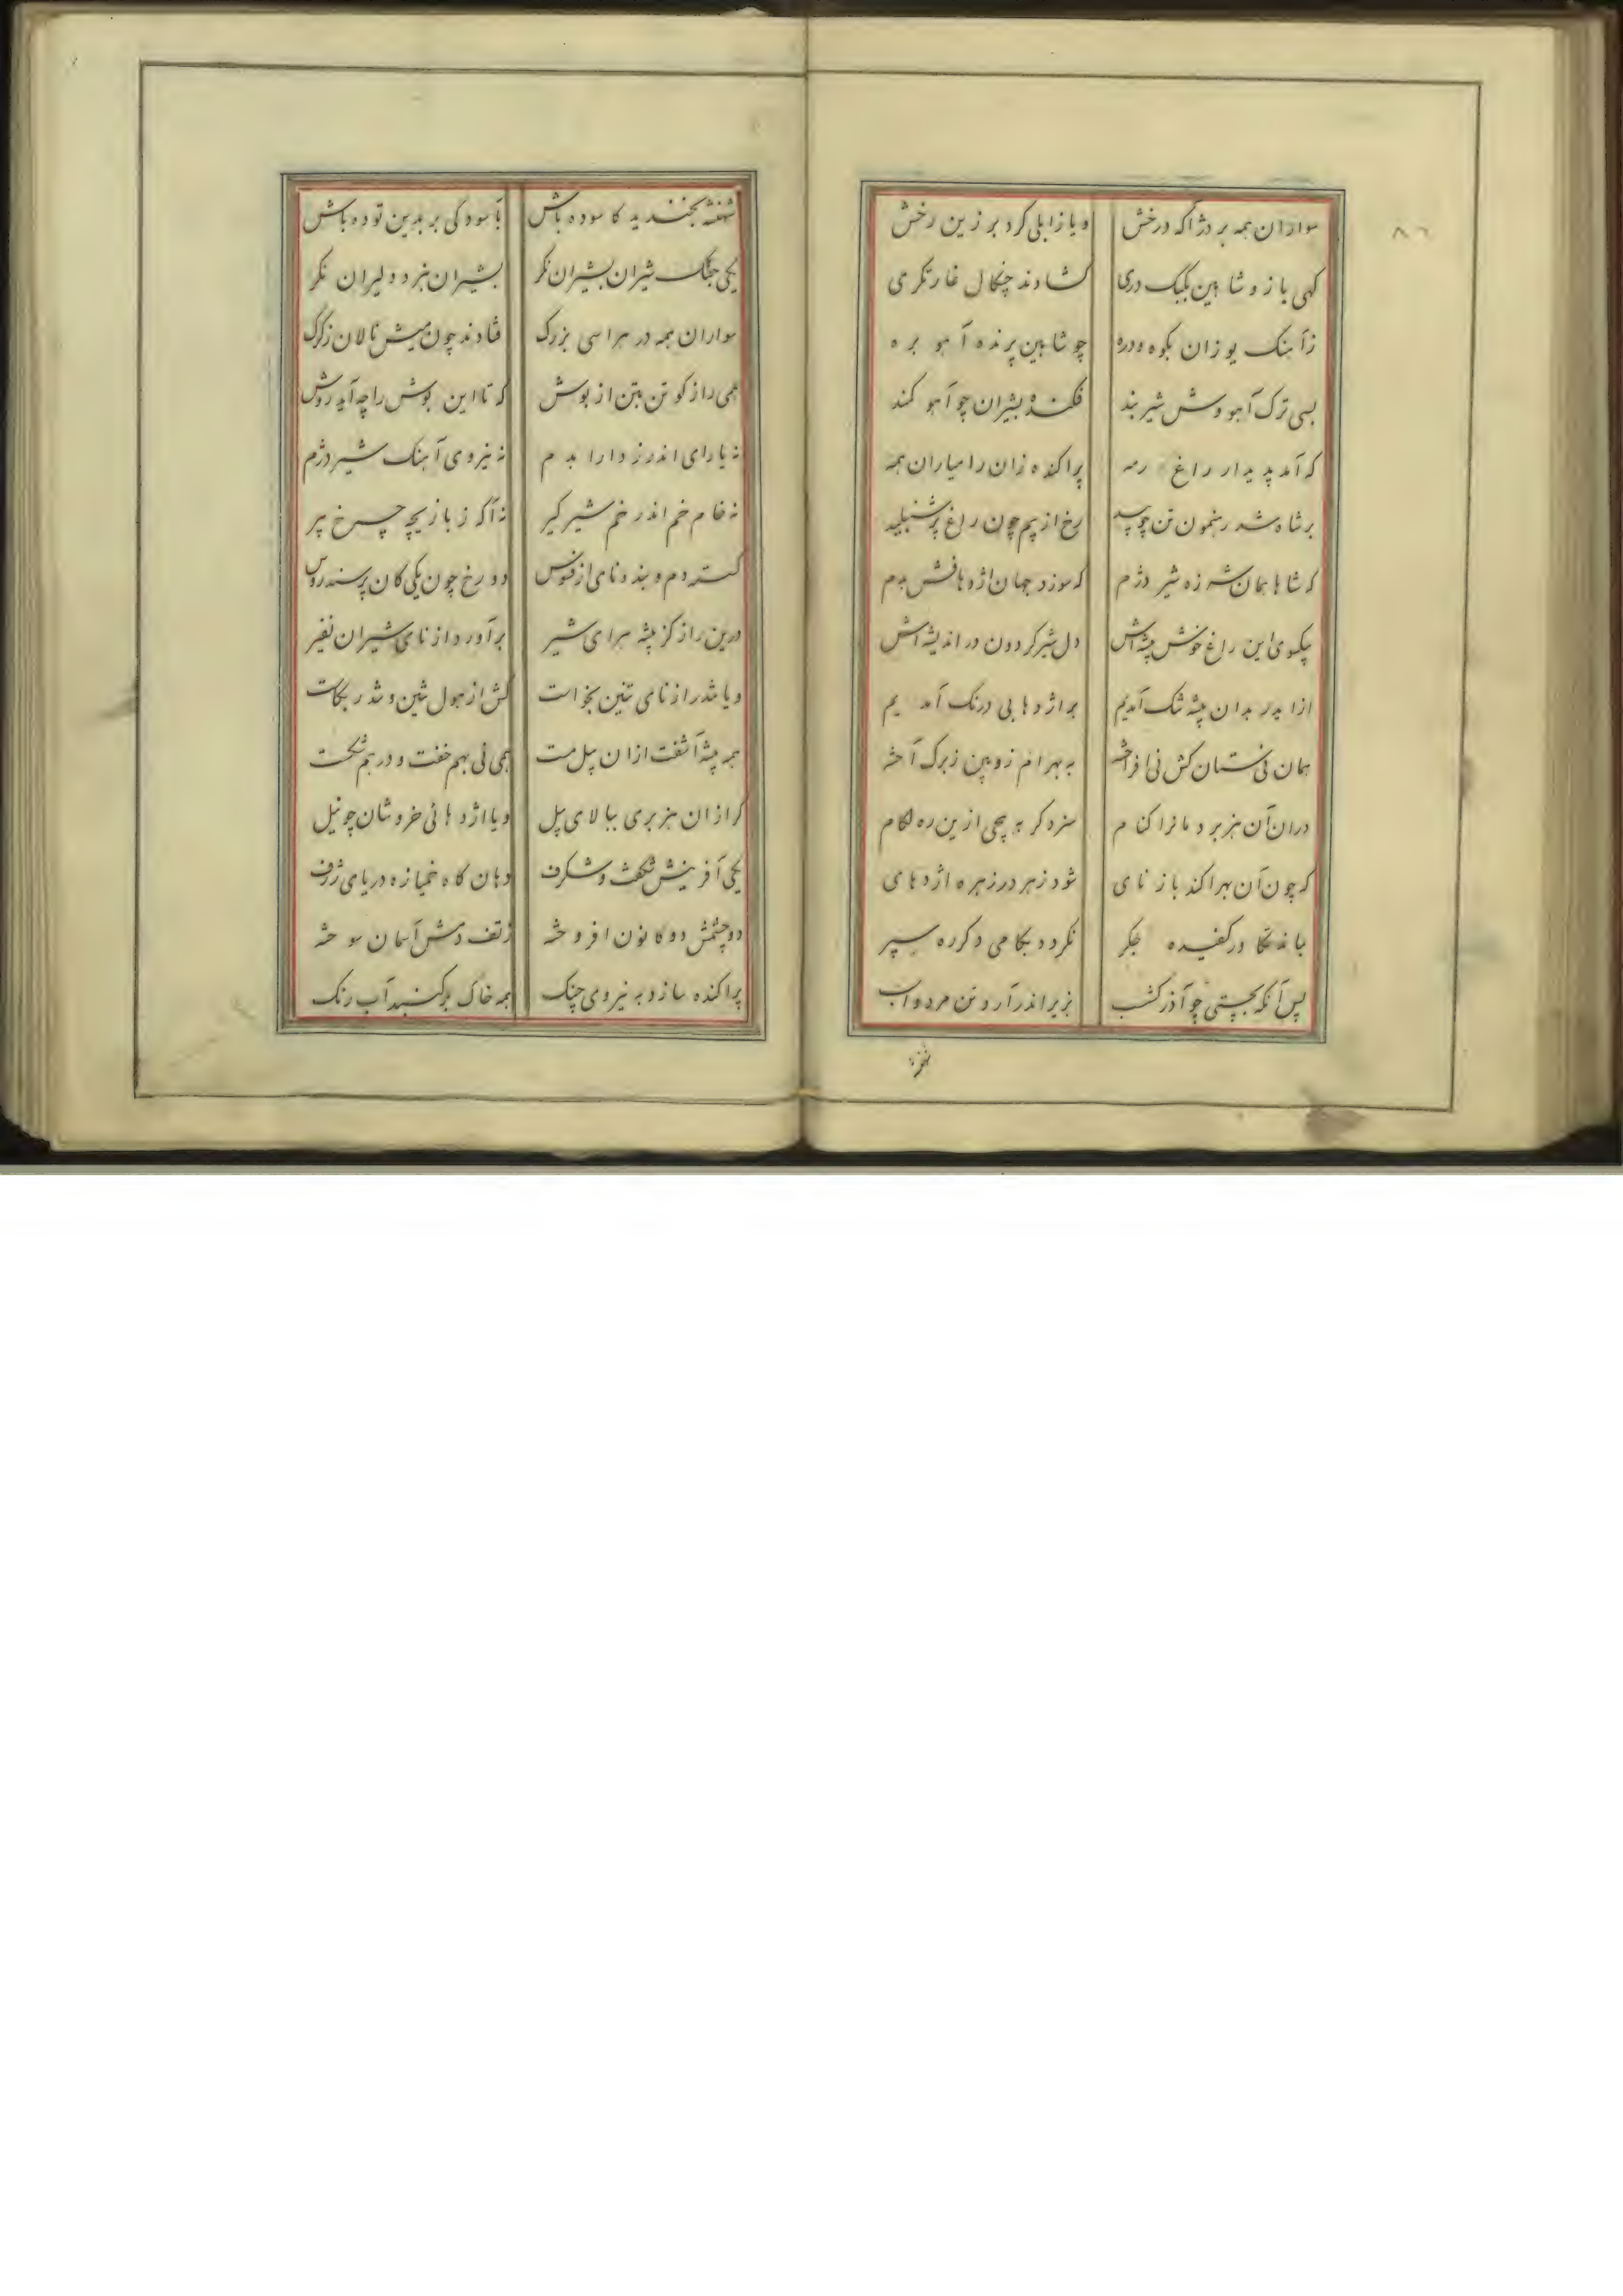 ۸۶
سواران همه بر دژ آکه درخش
و یا زابلی کرد بر زین رخش
کهی باز و شاهین بکبک دری
کشادند چنکال غارتکری
ز آهنک یوزان بکوه و دره
چو شاهین پرنده آهو بره
بسی ترک آهو وش شیر بند
فکنده بشیران چو آهو کمند
که آمد پدیدار راغ رمه
پراکنده زان رامیاران همه
بر شاه شد رهنمون تن چو بید
رخ از بیم چون راغ پر شنبلید
که شاها همان شرزه شیر دژم
که سوزد جهان اژدهافش بدم
بیکوی این راغ خوش بیشه‌اش
دل شیر کردون در اندیشه‌اش
از ایدر بدان بیشه تنک آمدیم
بر اژدها بی درنک آمدیم
همان نی‌ستان کش نی افراخته
به بهرام زوبین ز برک آخته
در ان آن هزبر دمانرا کنام
سزد کر به پیچی ازین ره لکام
که چون آن هرا کند باز نای
شود زهر در زهره اژدهای
بماند تکاور کفیده جکر
نکردد بکامی دکر ره سپر
پس آنکه بچستی چو آذرکشب
بزیر اندر آرد تن مرد و اسب
شهنشه بخندید کاسوده باش
بآسودکی بر بدین توده باش
یکی جنک شیران بشیران نکر
بشیران نبرد دلیران نکر
سواران همه در هراسی بزرک
فتادند چون میش نالان ز کرک
همی راز کو تن بتن از بوش
که تا این بوش را چه آید روش
نه یارای اندرز دارا بدم
نه نیروی آهنک شیر دژم
نه خام خم اندر خم شیر کیر
نه آکه ز بازیچه چرخ پیر
کسته دم و بند و نای از فسوس
دو رخ چون یکی کان پر سندروس
درین راز کز بیشه هرای شیر
برآورد از نای شیران نفیر
و یا تندر از نای تنین بخواست
کش از هول تنین و تندر بکاست
همه بیشه آشفت ازان پیل مست
همی نی بهم خفت و در هم شکست
کرازان هزبری ببالای پیل
و یا اژدهائی خروشان چو نیل
یکی آفرینش شکفت و شکرف
دهان کاه خمیازه دریای ژرف
دو چشمش دو کانون افروخته
ز تف دمش آسمان سوخته
پراکنده سازد به نیروی چنک
همه خاک بر کنبد آب رنک